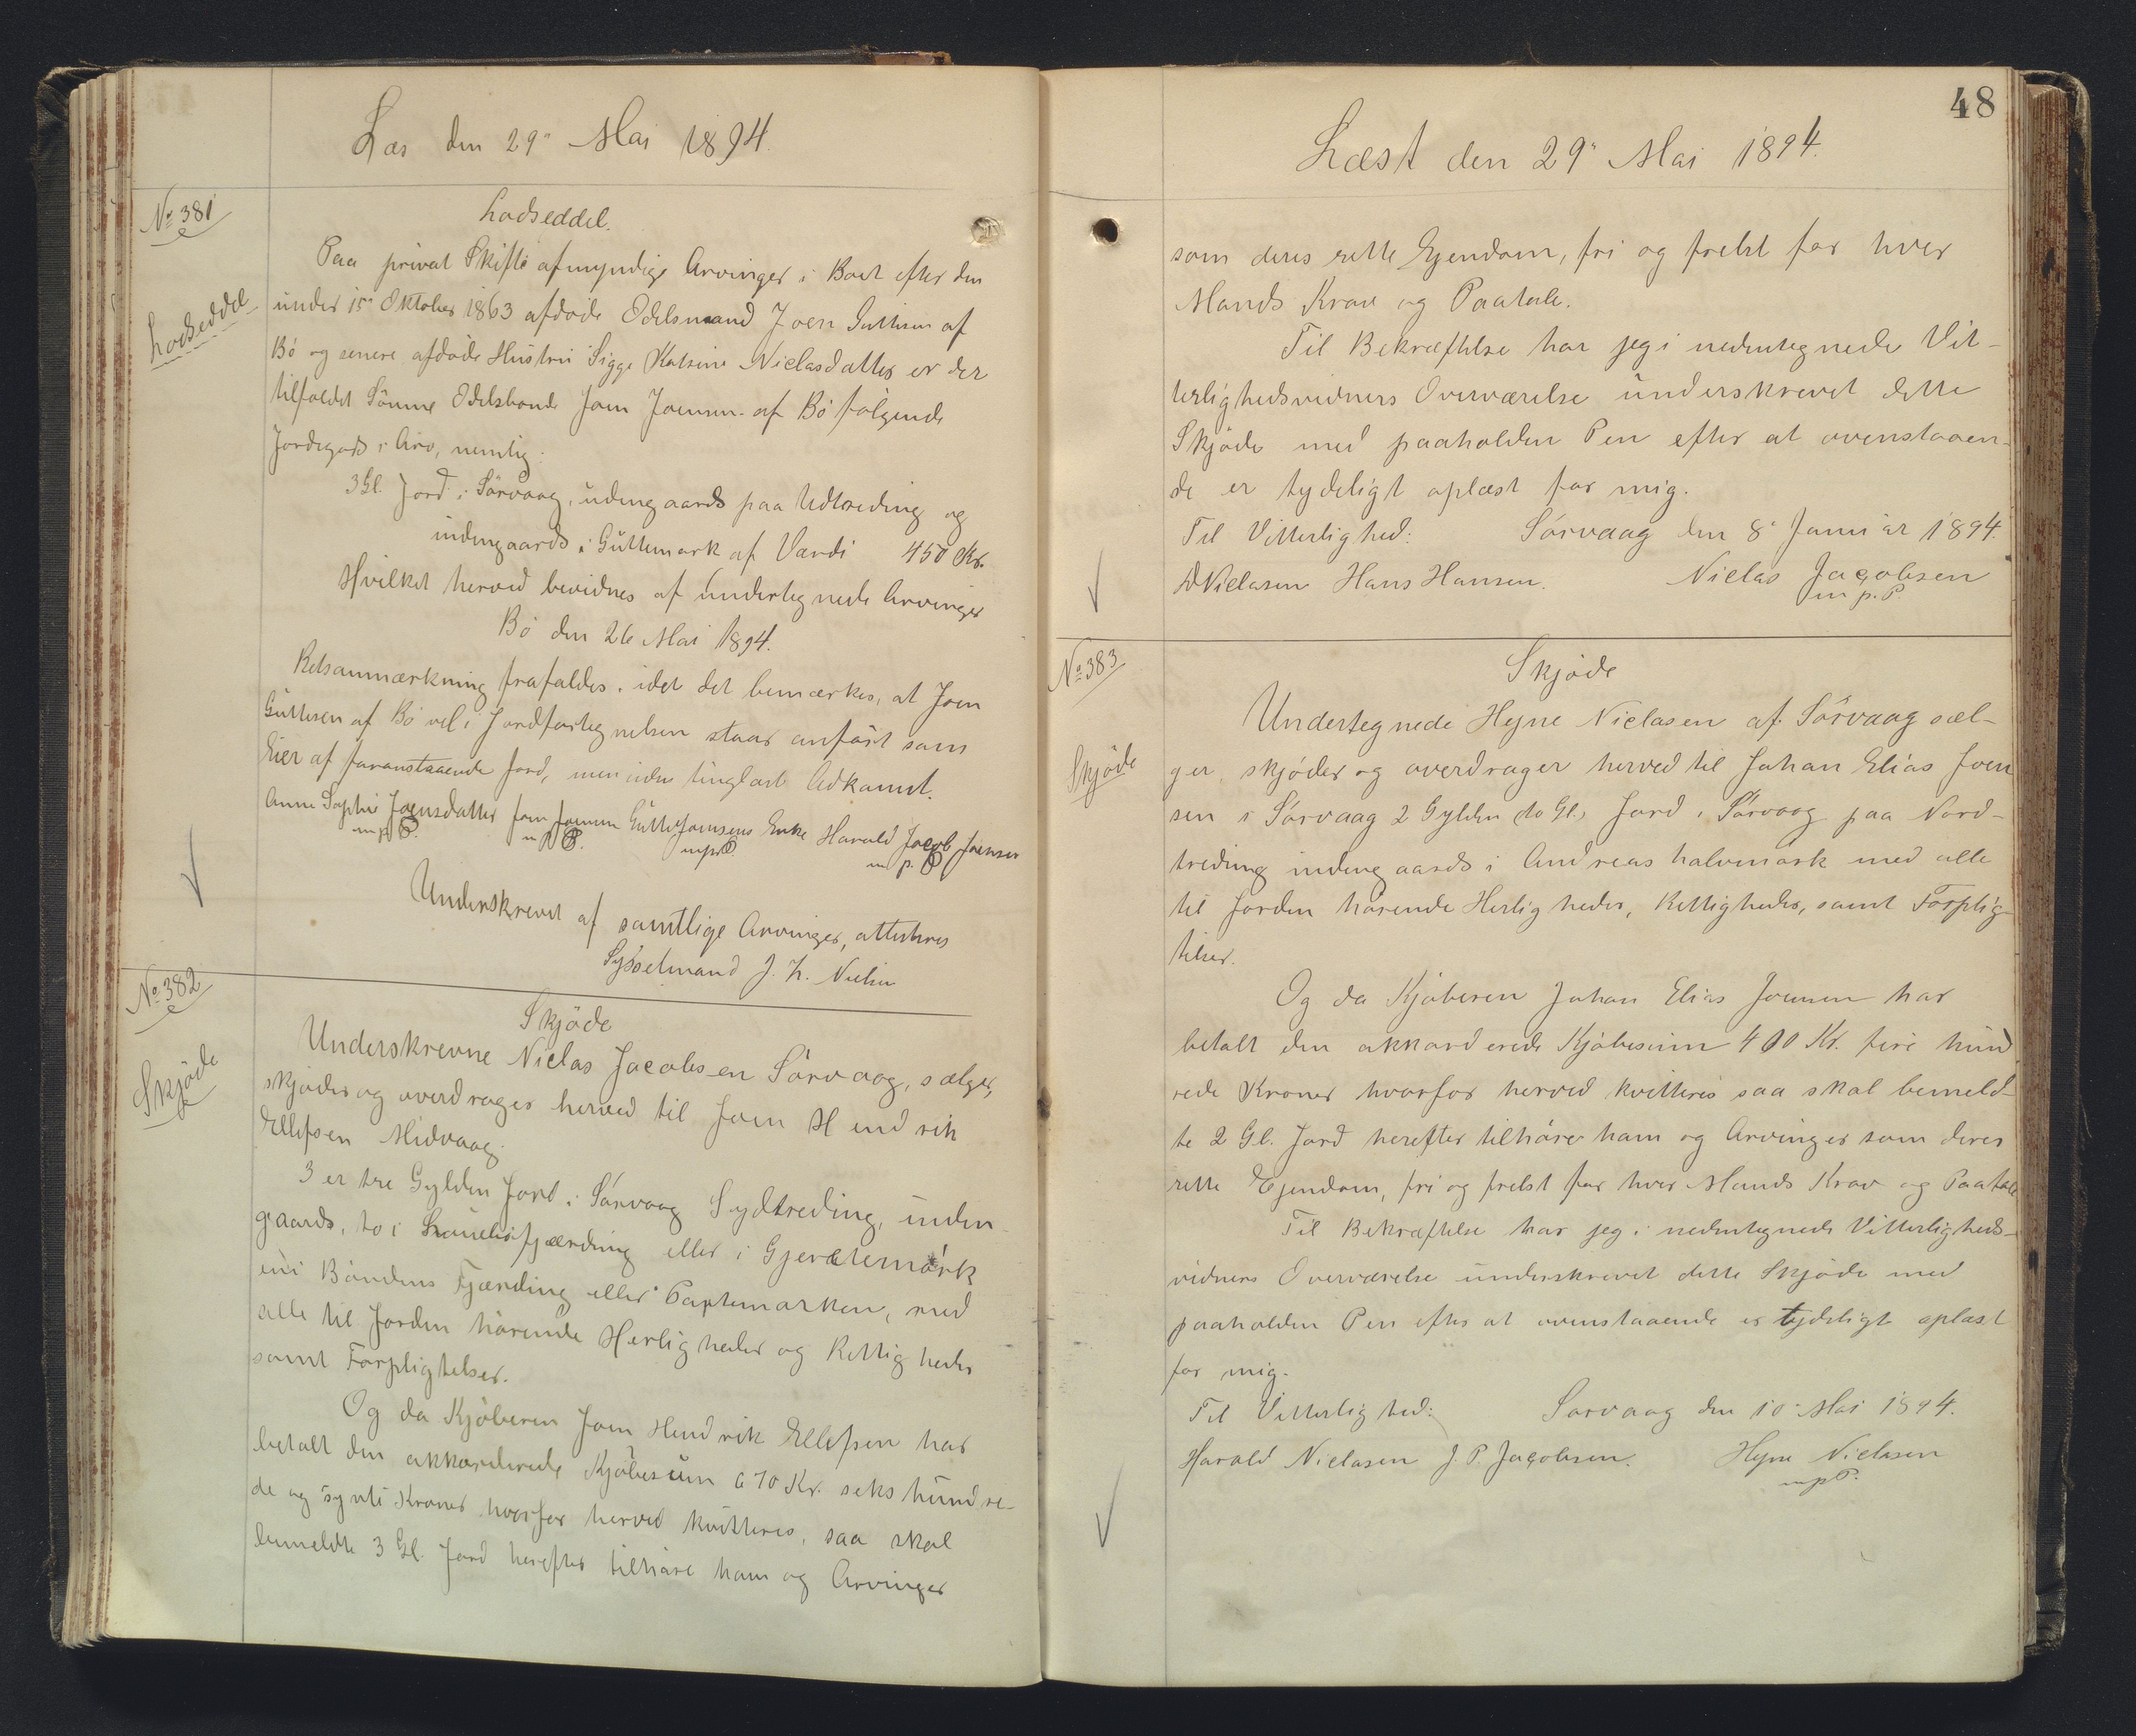 Læs den 29" Mai 1894.
No 381
Lodseddel
Lodseddel.
Paa privat Skifte af myndige Arvinger i Boet efter den
under 15" Oktober 1863 afdøde Odelsmand Joen Guttesen af
Bø og senere afdøde Hustru Sigge Katrine Niclasdatter er der
tilfaldet Sønne Odelsbonde Joen Joensen af Bø følgende
Jordegods i Arv, nemlig:
3 Gl. Jord i Sørvaag, udengaards paa Udtreding og
indengaards i Guttemark af Værdi 450 Kr.
Hvilket herved bevidnes af undertegnede Arvinger
Bø den 26 Mai 1894.
Retsanmærkning frafaldes, idet det bemærkes, at Joen
Guttesen af Bø vel i Jordfortegnelsen staar anført som
Eier af foranstaaende Jord, men uden tinglæst Adkomst.
Anne Sophie Joensdatter Joen Joensen Gutte Joensens Enke Harald Jacob Joensen
m p. P. m p. P. m p. P. m p. P.
Underskrevet af samtlige Arvinger, attesteres
Sysselmand J. H. Nielsen
No 382
Skjøde
Skjøde
Underskrevne Niclas Jacobsen Sørvaag, sælger,
skjøder og overdrager herved til Joen Hendrik
Ellefsen Midvaag:
3 er tre Gylden Jord i Sørvaag Sydtreding, inden-
gaards, to i fjærding eller i Gjerdemørk
en i Bondens Fjerding eller Paptemarken, med
alle til Jorden hørende Herligheder og Rettigheder
samt Forpligtelser.
Og da Kjøberen Joen Hendrik Ellefsen har
betalt den akkorderede Kjøbesum 670 Kr. seks hundre-
de og synti Kroner hvorfor herved kvitteres, saa skal
bemeldte 3 Gl. Jord herefter tilhøre ham og Arvinger
48
Læst den 29" Mai 1894.
som deres rette Ejendom, fri og frelst for hver
Mands Krav og Paatale.
Til Bekræftelse har jeg i nedentegnede Vit-
terlighedsvidners Overværelse underskrevet dette
Skjøde med paaholden Pen efter at ovenstaaen-
de er tydeligt oplæst for mig.
Til Vitterlighed: Sørvaag den 8" Januar 1894.
D Niclasen Hans Hansen. Niclas Jacobsen
m p. P.
No 383
Skjøde
Skjøde
Undertegnede Hejne Niclasen af Sørvaag sæl-
ger, skjøder og overdrager herved til Johan Elias Joen
sen i Sørvaag 2 Gylden (to Gl.) Jord i Sørvaag paa Nord-
treding indengaards i Andreas halvmark med alle
til Jorden hørende Herligheder, Rettigheder, samt Forplig-
telser.
Og da Kjøberen Johan Elias Joensen har
betalt den akkorderede Kjøbesum 400 Kr. fire hund
rede Kroner hvorfor herved kvitteres saa skal bemeld-
te 2 Gl. Jord herefter tilhøre ham og Arvinger som deres
rette Ejendom, fri og frelst for hver Mands Krav og Paatale
Til Bekræftelse har jeg i nedentegnede Vitterligheds-
vidners Overværelse underskrevet dette Skjøde med
paaholden Pen efter at ovenstaaende er tydeligt oplæst
for mig.
Til Vitterlighed: Sørvaag den 10" Mai 1894.
Harald Niclasen J. P. Jacobsen. Hejne Niclasen
m p P.